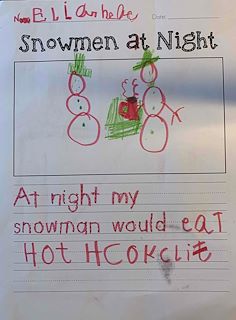 Name Elianhele Date:
Snowmen at Night
At night my
snowman would eat
Hot HCOKclit